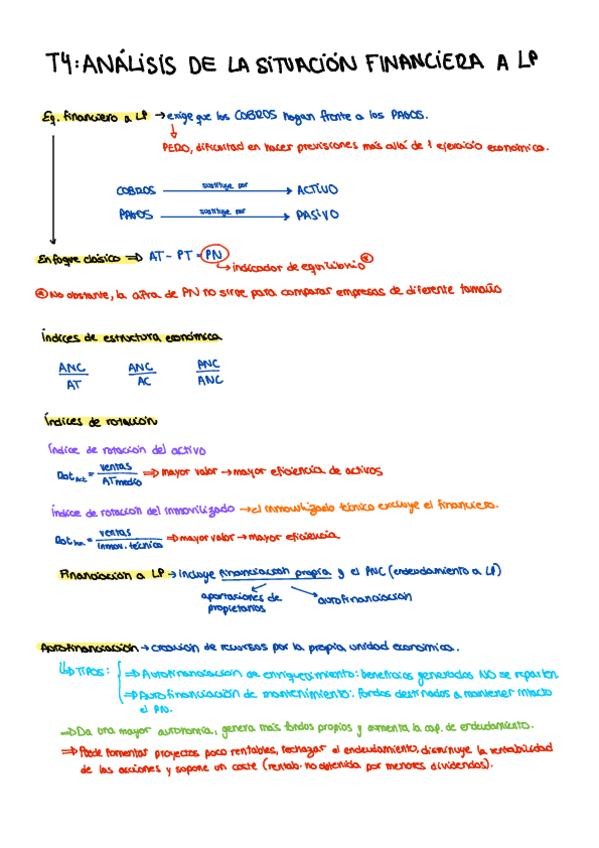 T4: ANÁLISIS DE LA SITUACIÓN FINANCIERA A LP
Eq. financiero a LP → exige que los COBROS hagan frente a los PAGOS.
PERO, dificultad en hacer previsiones más allá de 1 ejercicio económico.
COBROS sustituye por → ACTIVO
PAGOS sustituye por → PASIVO
Enfoque clásico ⇒ AT - PT = PN
indicador de equilibrio *
* No obstante, la cifra de PN no sirve para comparar empresas de diferente tamaño
Índices de estructura económica
ANC/AT ANC/AC PNC/ANC
Índices de rotación
Índice de rotación del activo
Rot Act = ventas/AT medio ⇒ mayor valor → mayor eficiencia de activos
Índice de rotación del inmovilizado → el inmovilizado técnico excluye el financiero.
Rot = ventas/inmov. técnico ⇒ mayor valor → mayor eficiencia
Financiación a LP → incluye financiación propia y el PNC (endeudamiento a LP)
aportaciones de autofinanciación
propietarios
Autofinanciación → creación de recursos por la propia unidad económica.
↳ TIPOS: ⇒ Autofinanciación de enriquecimiento: beneficios generados NO se reparten.
⇒ Autofinanciación de mantenimiento: fondos destinados a mantener intacto
el PN.
⇒ Da una mayor autonomía, genera más fondos propios y aumenta la cap. de endeudamiento.
⇒ Puede fomentar proyectos poco rentables, rechazar el endeudamiento, disminuye la rentabilidad
de las acciones y supone un coste (rentab. no obtenida por menores dividendos).